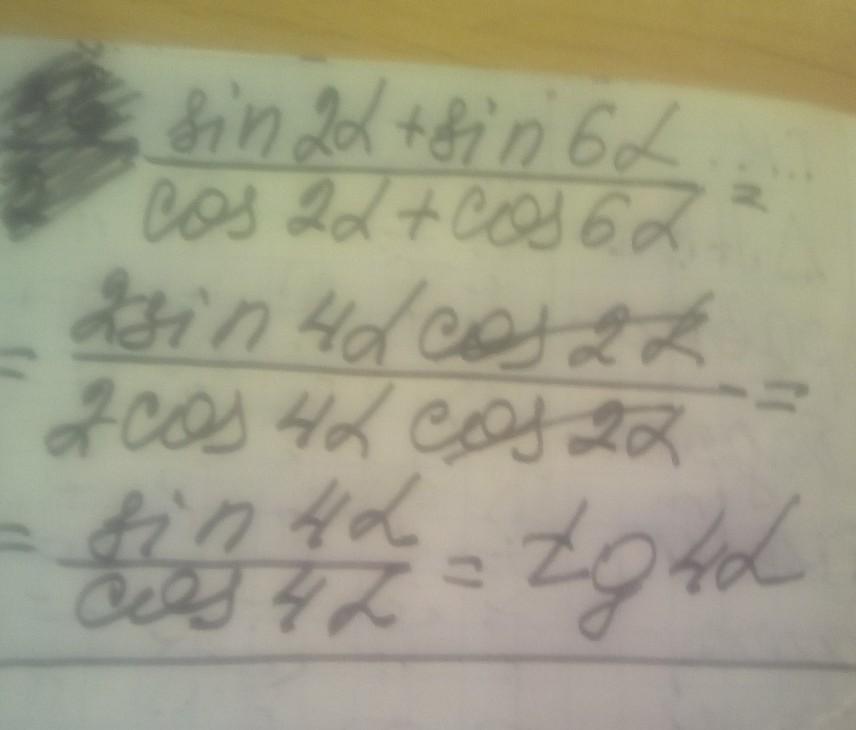 sin 2α + sin 6α
cos 2α + cos 6α =
= 2 sin 4α cos 2α
2 cos 4α cos 2α =
= sin 4α
cos 4α = tg 4α